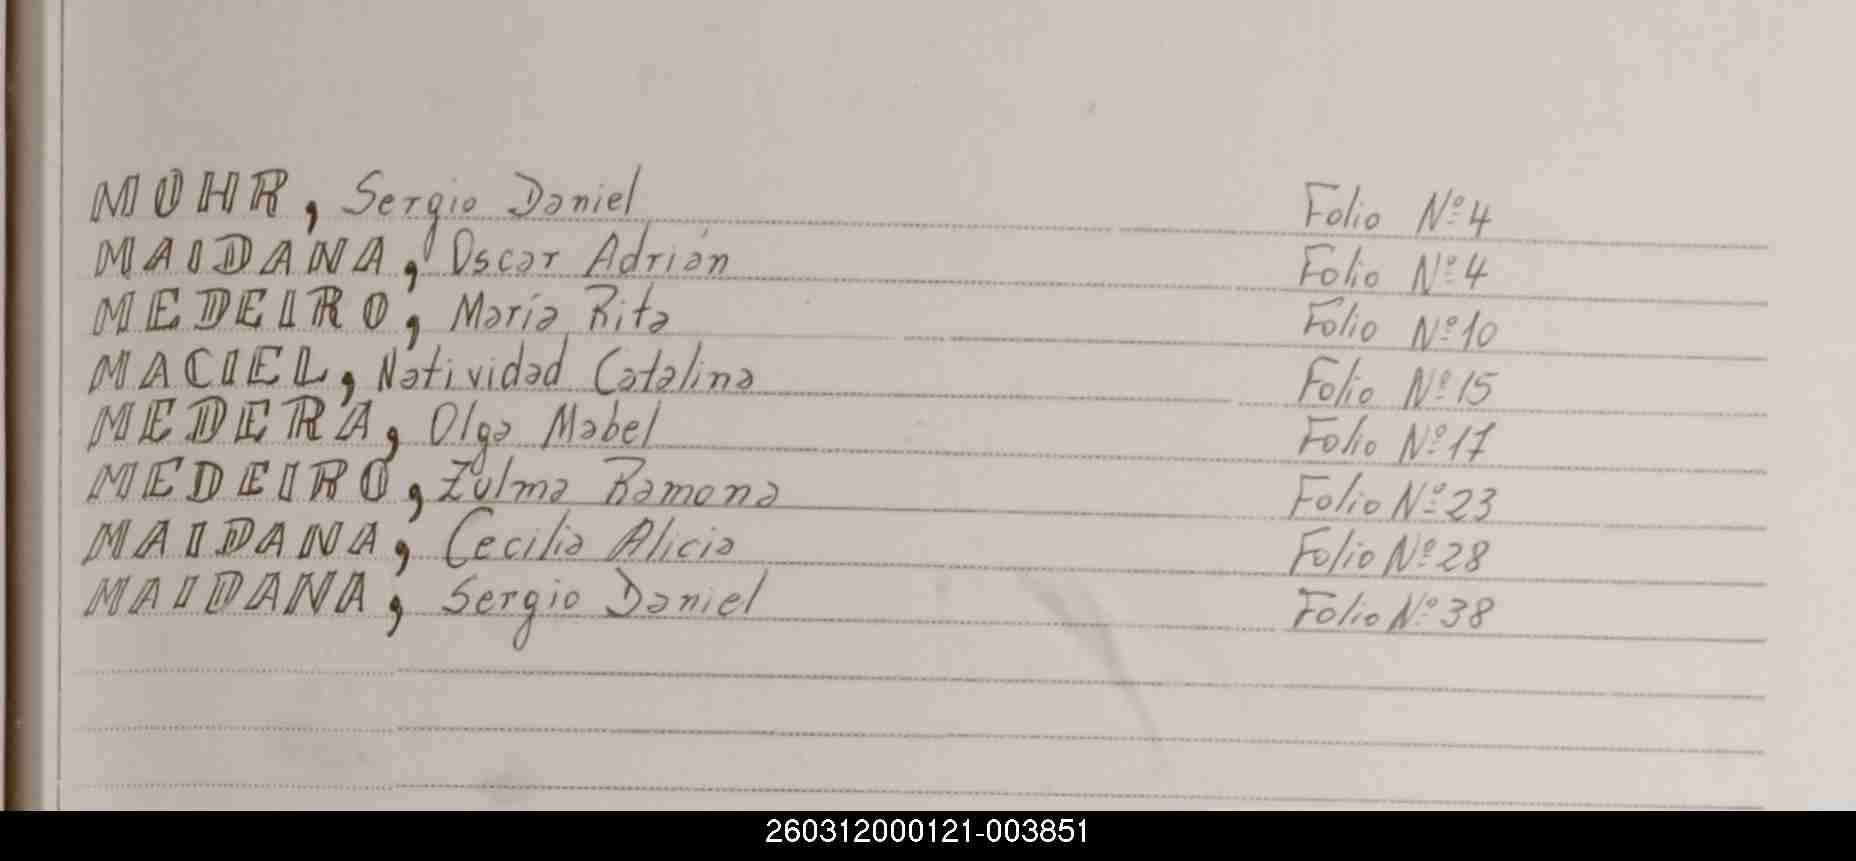 MOHR, Sergio Daniel Folio Nº 4
MAIDANA, Oscar Adrián Folio Nº 4
MEDEIRO, María Rita Folio Nº 10
MACIEL, Natividad Catalina Folio Nº 15
MEDERA, Olga Mabel Folio Nº 17
MEDEIRO, Zulma Ramona Folio Nº 23
MAIDANA, Cecilia Alicia Folio Nº 28
MAIDANA, Sergio Daniel Folio Nº 38
260312000121-003851